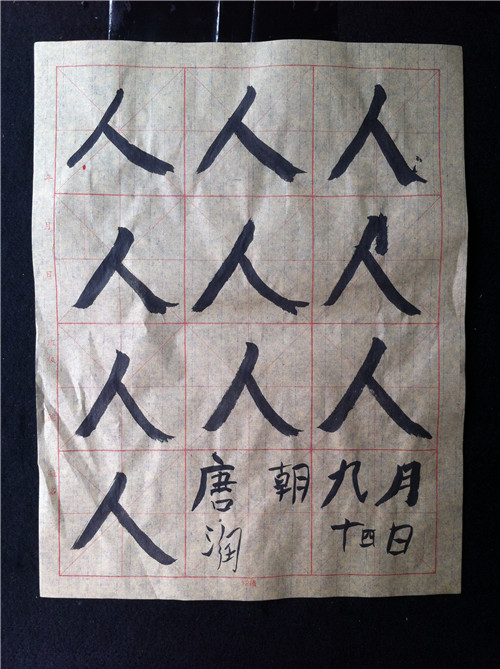 人人人
人人人
人人人
人
唐 朝 九月
润 十四日